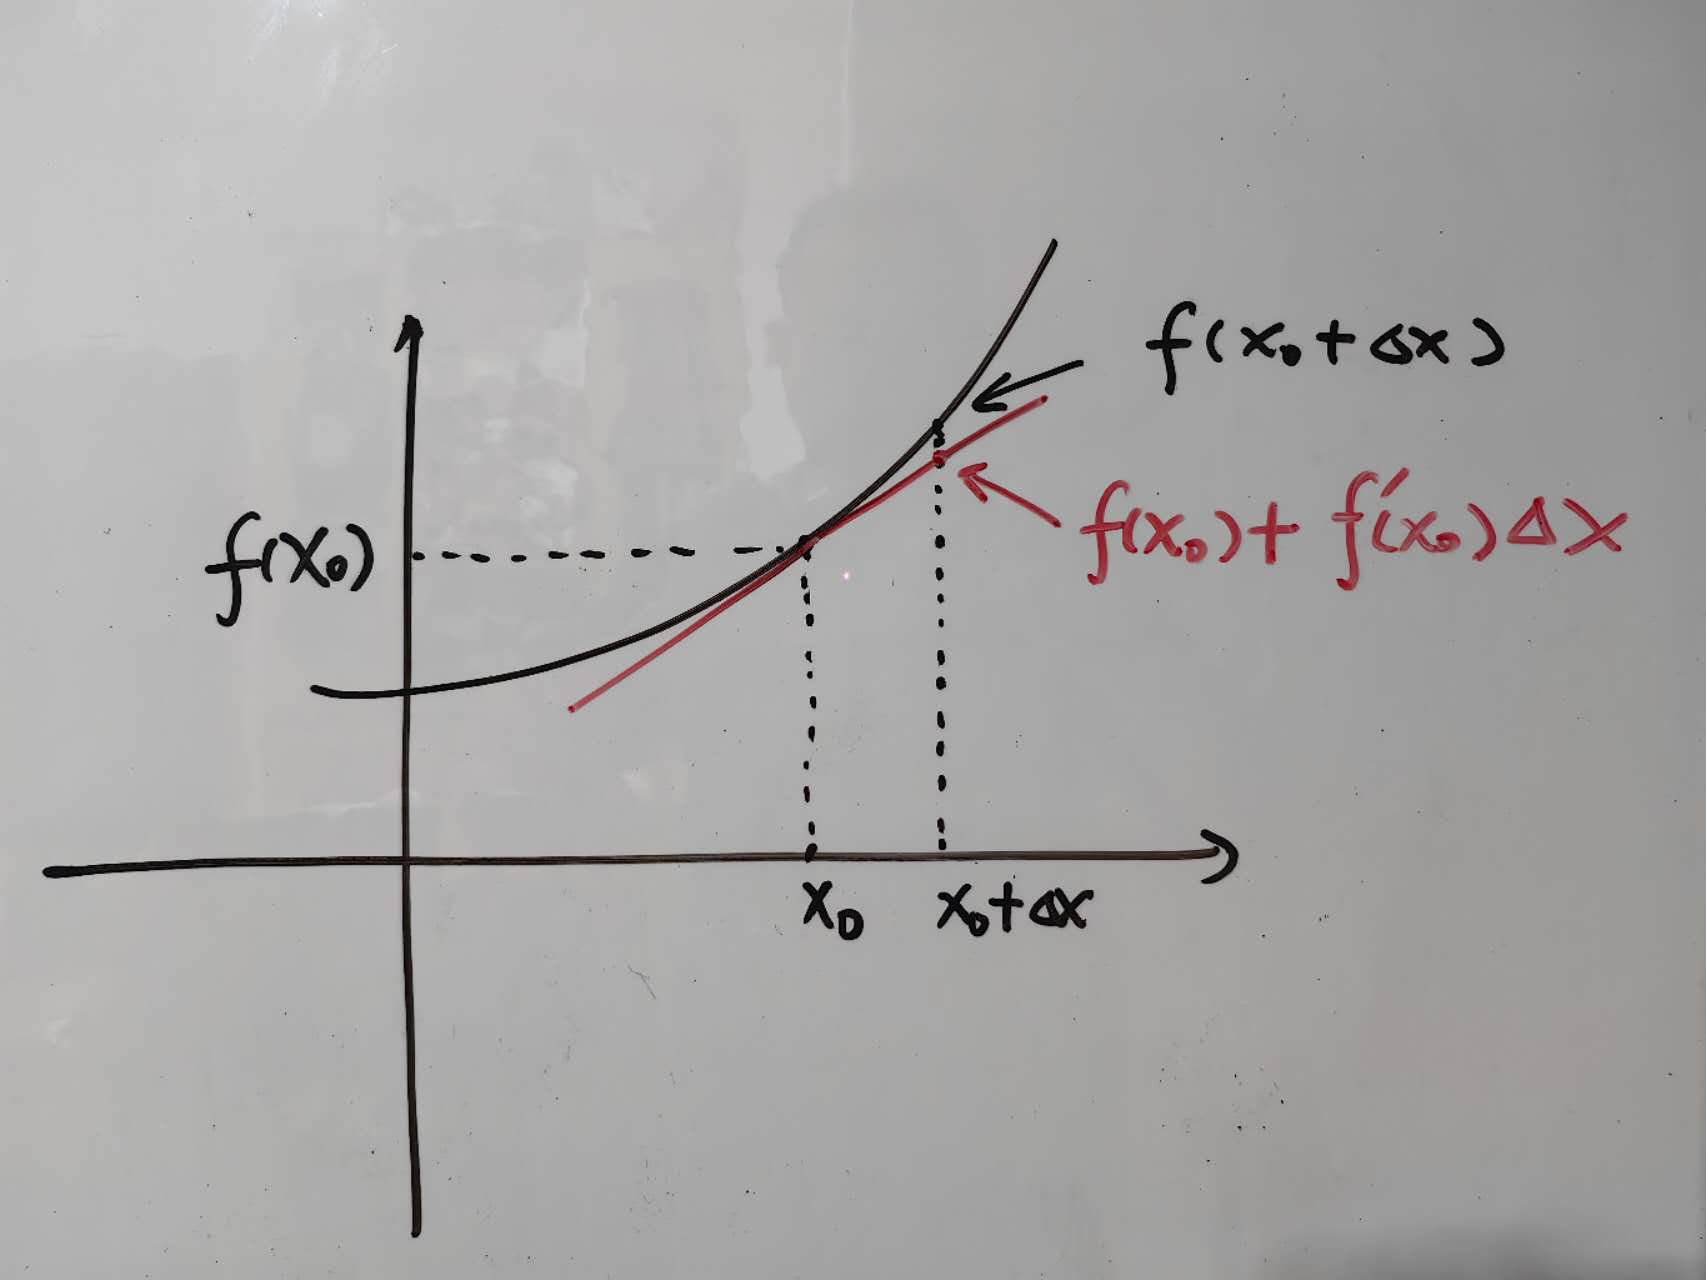 f(x₀+Δx)
f(x₀)
f(x₀)+f′(x₀)Δx
x₀
x₀+Δx